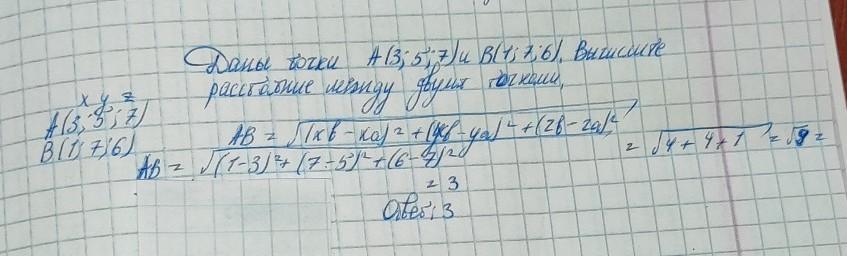 Даны точки A(3; 5; 7) и B(1; 7; 6). Вычислите
расстояние между двумя точками.
x y z
A(3; 5; 7)
B(1; 7; 6)
AB = √((xb - xa)² + (yb - ya)² + (zb - za)²
AB = √(1-3)² + (7-5)² + (6-7)² = √4 + 4 + 1 = √9 =
= 3
Ответ: 3